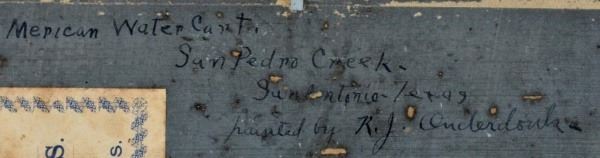 Merican Water Cart.
San Pedro Creek -
San Antonio - Texas
painted by R. J. Onderdonk -
S.
S.